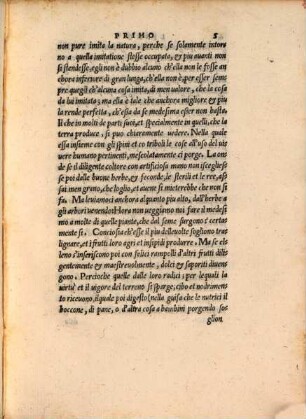 PRIMO 5
non pure imita la natura, perche se solamente intor
no a quella imitatione stesse occupato, et piu avanti non
si stendesse, egli non è dubbio alcuno ch'ella non le fosse an
chora inferiore di gran lunga, ch'ella non è, per esser sem
pre quegli ch'alcuna cosa imita, di men valore, che la cosa
da lui imitata; ma ella è tale che anchora migliore et piu
la rende perfetta, ch'essa da se medesima esser non basta
Il che in molte de parti suoi, et specialmente in quelli, che
la terra produce, si puo chiaramente vedere. Nella quale
essa insieme con gli spini et co triboli le cose all'uso del viue
re humano pertinenti, mescolatamente ci porge. La on
de se il diligente coltore con artificiosa mano non iscegliesse
se poi dalle buone herbe, et feconde, le sterili et le ree, as
sai men grano, che loglio, et auene si mieterebbe che non si
fa. Ma leuianoci anchora alquanto piu alto, dall'herbe
a gli arbori venendo: Hora non ueggiamo noi fare il medesi
mo à molte di quelle piante, che dal seme surgono? certas
mente si. Conciosia ch'esse il piu delle uolte sogliono tras
lignare, et i frutti loro agri et insipidi produrre. Ma se els
le s'inseriscono poi con felici rampolli d'altri frutti dili
gentemente et maestreuolmente, dolci et saporiti diuens
gono. Percioche quelle dalle loro radici; per lequali la
uirtu et il uigore del terreno si sparge, cibo et nodrimens
to riceuono, il quale poi digesto (nella guisa che le nutrici il
boccone, di pane, o d'altra cosa a bambini porgendo sos
glion